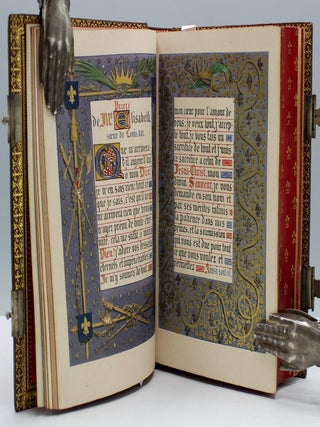 Prière
de Mme Elisabeth,
sœur de Louis XVI.
Que m'arrivera-
t-il aujourd'hui,
ô mon Dieu,
je n'en sais rien; tout ce
que je sais, c'est qu'il ne
m'arrivera rien que vous
n'ayez prévu de toute
Dieu, j'adore vos desseins
éternels et impénétrables,
je m'y soumets de tout
mon cœur pour l'amour de
vous, je veux tout, j'accep-
te tout, je vous fais un
sacrifice de tout et j'unis
ce sacrifice à celui de
Jésus-Christ, mon Divin
Sauveur, je vous
demande en son nom et
par ses mérites infinis
la patience dans mes
et la soumission
qui vous est due pour tout
ce que vous voulez et
permettez. Ainsi soit-il.